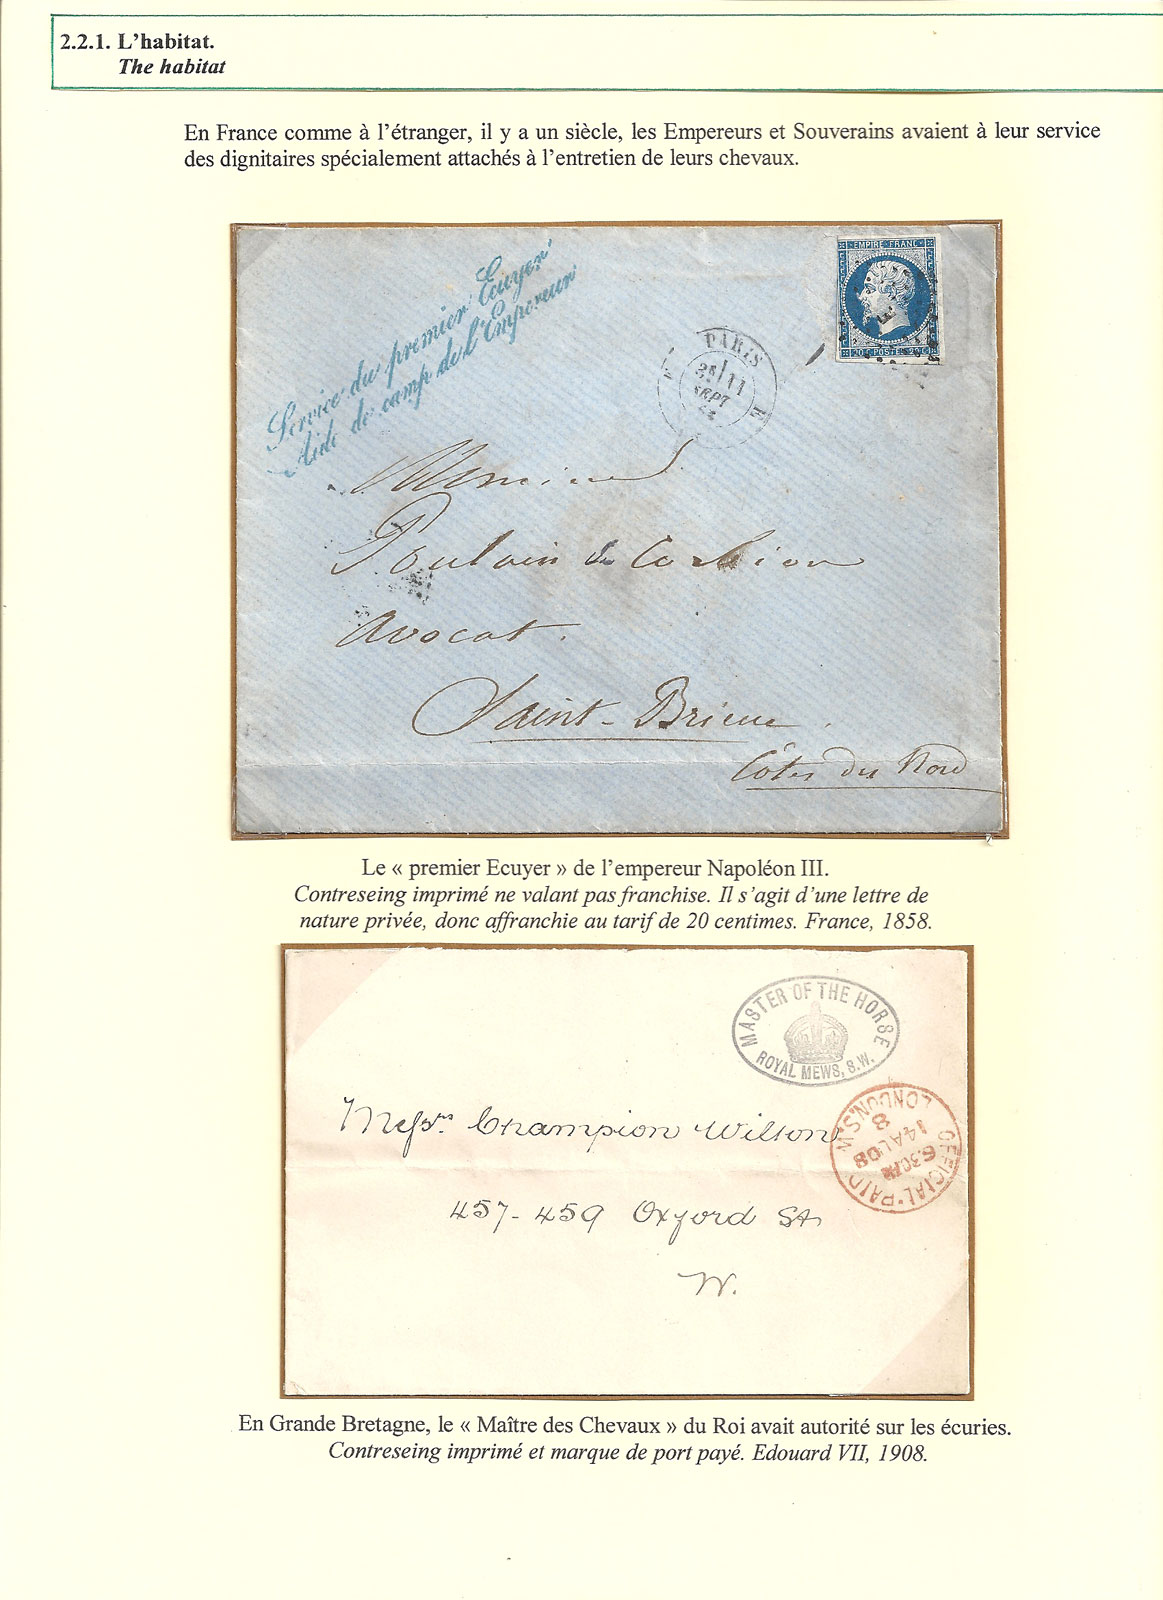 2.2.1. L'habitat.
The habitat
En France comme à l'étranger, il y a un siècle, les Empereurs et Souverains avaient à leur service
des dignitaires spécialement attachés à l'entretien de leurs chevaux.
Service du premier Ecuyer
Aide de camp de l'Empereur
EMPIRE FRANC
20 C POSTES 20 C
PARIS
11
SEPT
Monsieur
Poulain
Avocat.
Saint-Brieuc.
Côtes du Nord
Le « premier Ecuyer » de l'empereur Napoléon III.
Contreseing imprimé ne valant pas franchise. Il s'agit d'une lettre de
nature privée, donc affranchie au tarif de 20 centimes. France, 1858.
MASTER OF THE HORSE
ROYAL MEWS, S.W.
LONDON.S.W.
8
14 AU 08
6.30PM
OFFICIAL PAID
Messrs. Champion Wilson
457-459 Oxford St
W.
En Grande Bretagne, le « Maître des Chevaux » du Roi avait autorité sur les écuries.
Contreseing imprimé et marque de port payé. Edouard VII, 1908.